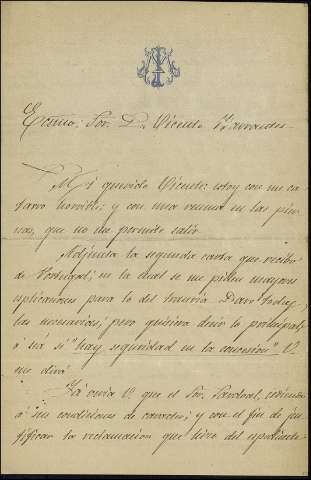 Excmo. Sor. D. Vicente Barrantes.
Mi querido Vicente: estoy con un ca
tarro horrible; y con una reuma en las pier
nas, que no me permite salir.
Adjunta la segunda carta que recibo
de Portugal; en la cual se me piden mayores
esplicaciones para lo del tranvia. Daré todas
las necesarias; pero quisiera decir lo principal,
ó sea si "hay seguridad en la concesion" V.
me dirá.
Yá veria V. que el Sor. Sandoval,
á sus condiciones de caracter; y con el fin de jus
tificar la reclamacion que hizo del espediente